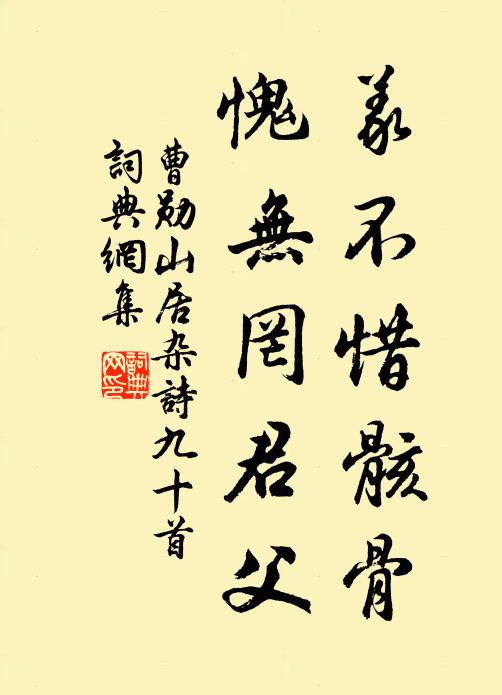 義不惜骸骨
愧無罔君父
曹勛山居杂詩九十首
詞典網集
詞典网印